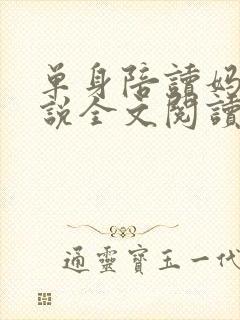 單身陪讀妈
說全文閱讀
通靈寶玉一代